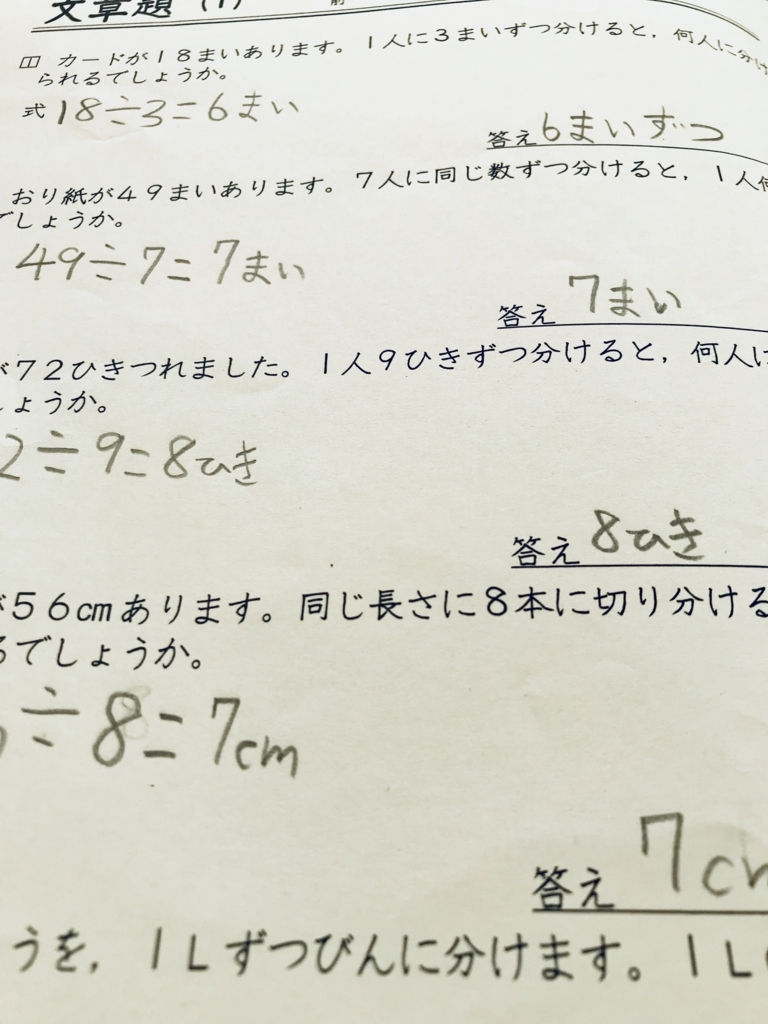 文章題 (1)
1 カードが18まいあります。1人に3まいずつ分けると，何人に分け
られるでしょうか。
式 18÷3=6まい
答え 6まいずつ
おり紙が49まいあります。7人に同じ数ずつ分けると，1人何
でしょうか。
49÷7=7まい
答え 7まい
が72ひきつれました。1人9ひきずつ分けると，何人に
しょうか。
2÷9=8ひき
答え 8ひき
が56cmあります。同じ長さに8本に切り分ける
るでしょうか。
÷8=7cm
答え 7cm
うを，1Lずつびんに分けます。1L